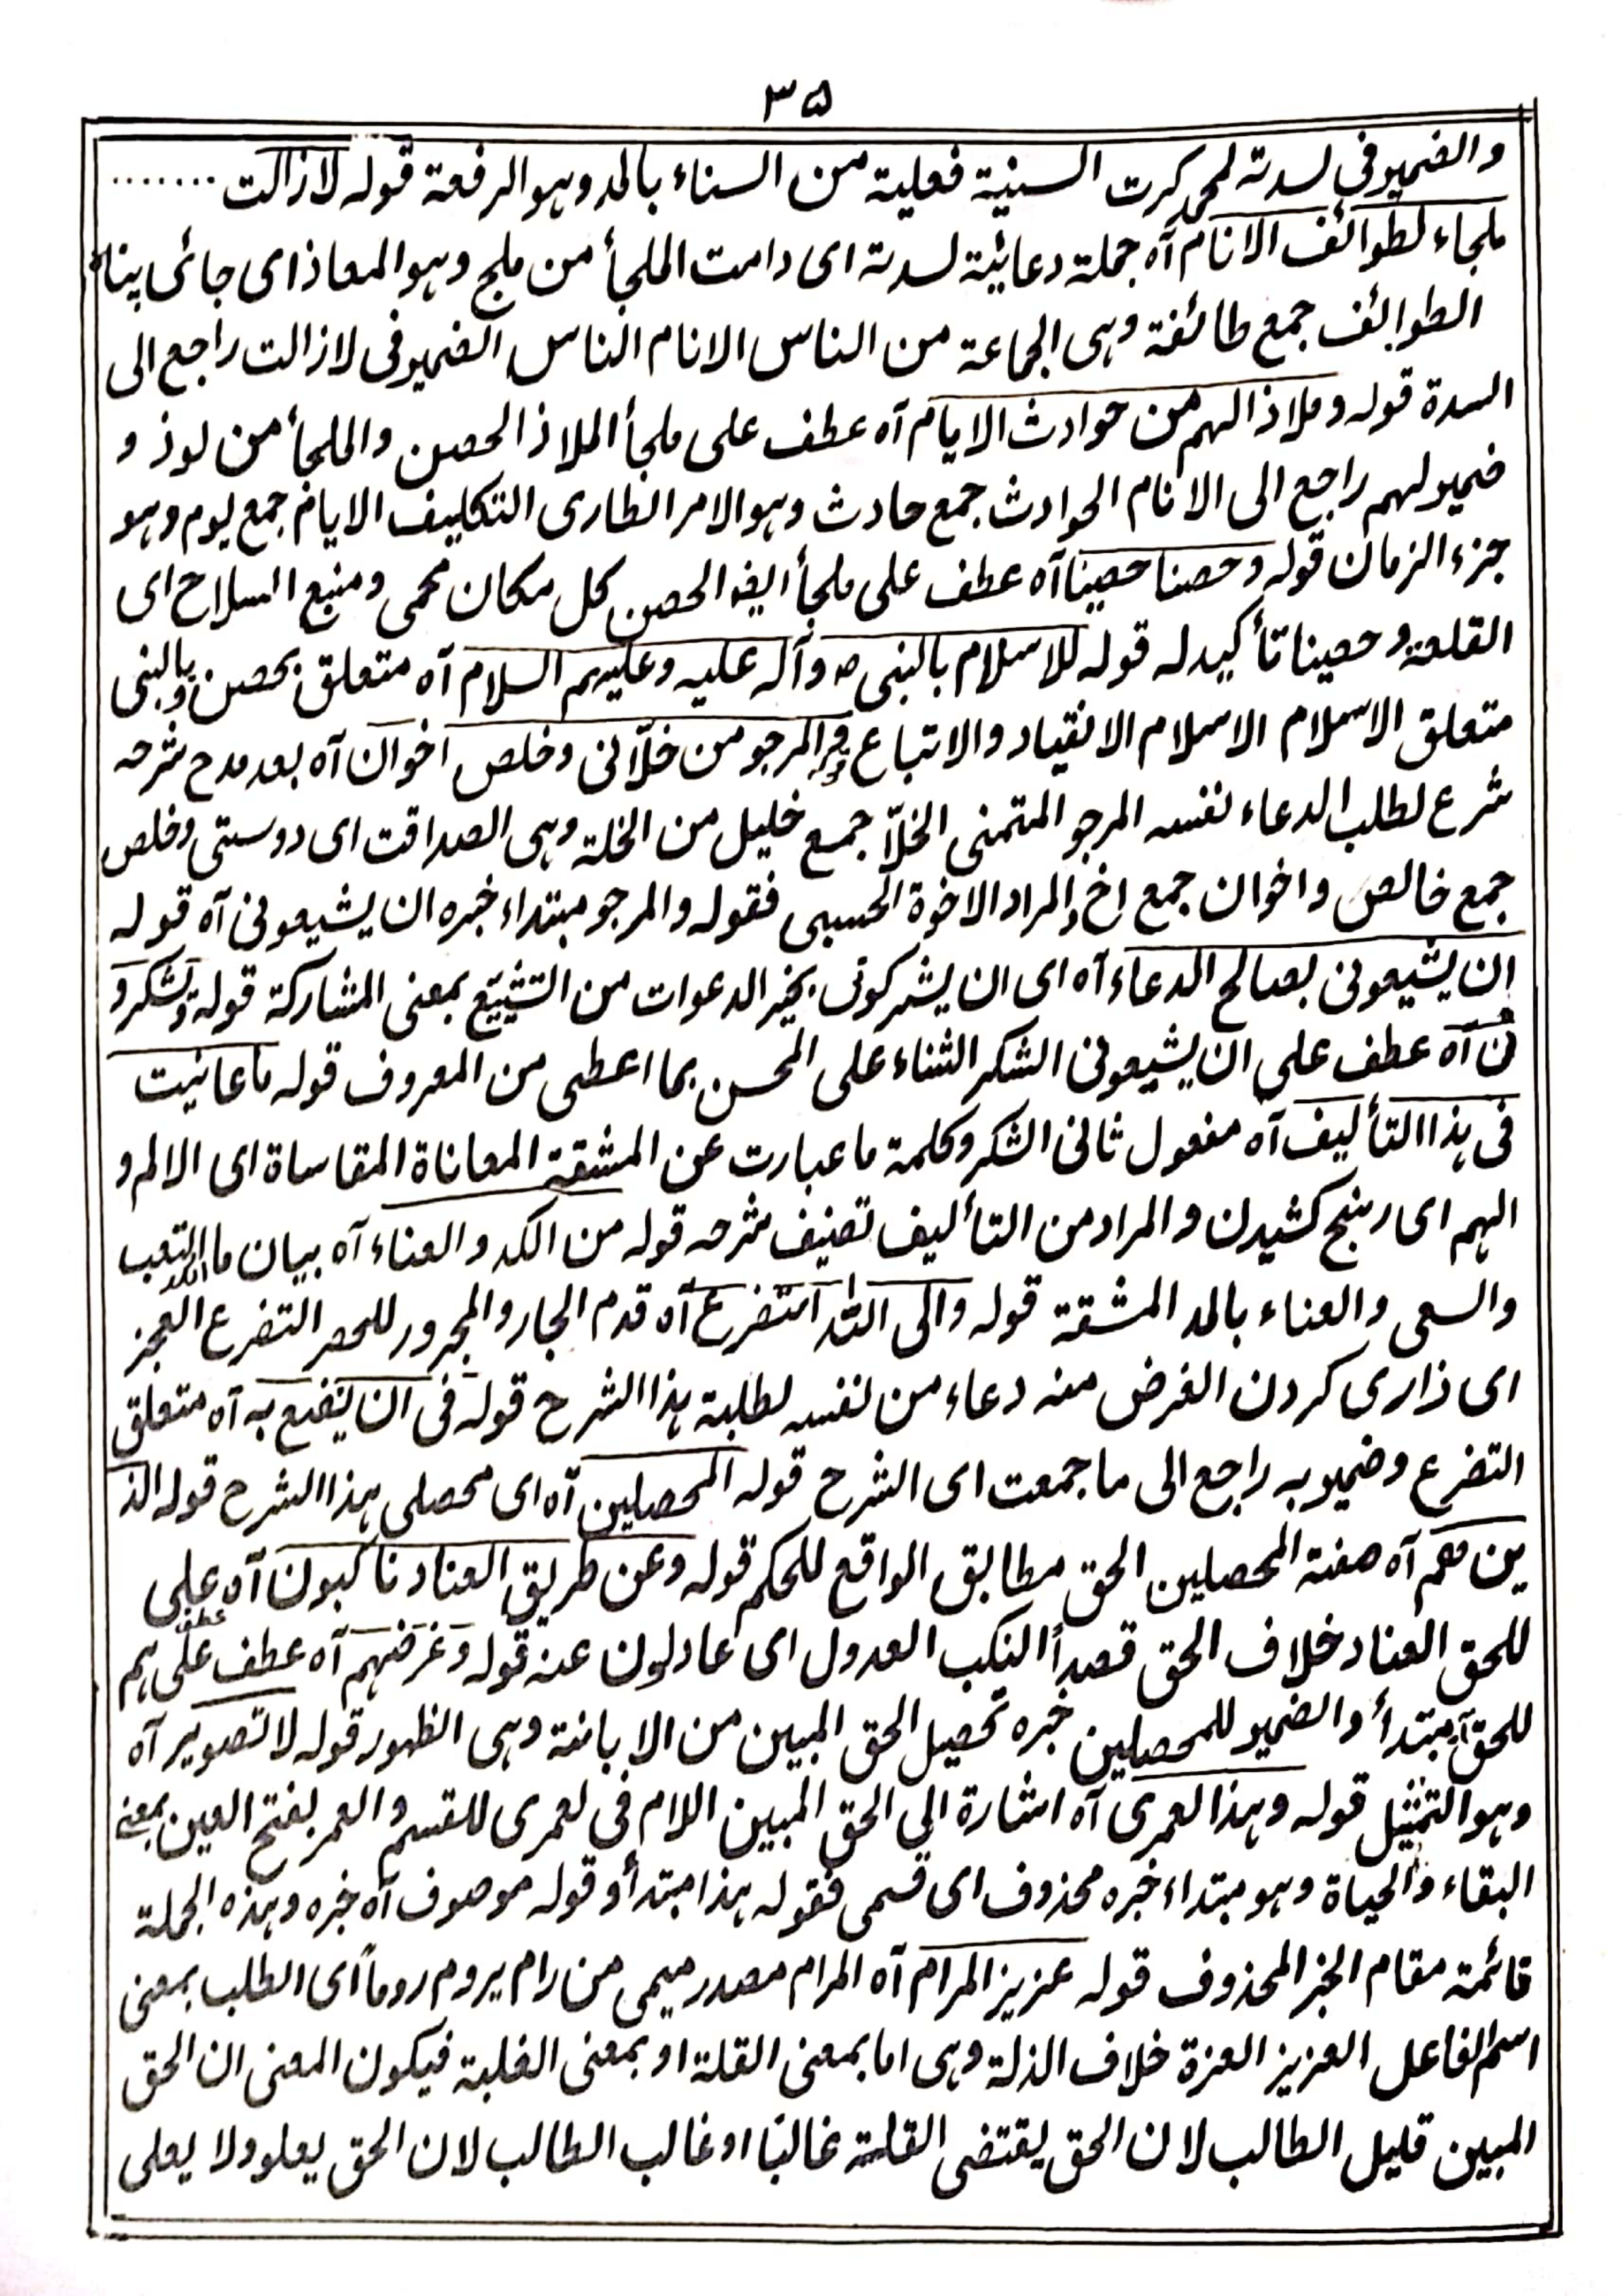 ٣۵
والضمیر فی لسدته لمحمد کرت السنیة فعلیة من السناء بالمد وہو الرفعة قولہ لازالت .......
ملجاء لطوائف الانام آہ جملة دعائیة لسدته ای دامت الملجأ من ملج وہو المعاذ ای جائی پناہ
الطوائف جمع طائفة وہی الجماعة من الناس الانام الناس الضمیر فی لازالت راجع الی
السدة قولہ وملاذ الہم من حوادث الایام آہ عطف علی ملجأ الملاذ الحصن والملجأ من لوذ و
ضمیر لہم راجع الی الانام الحوادث جمع حادث وہو الامر الطاری التکلیف الایام جمع یوم وہو
جزء الزمان قولہ وحصنا حصینا آہ عطف علی ملجأ ایضا الحصن کل مکان محمی ومنیع السلاح ای
القلعة وحصینا تأکید له قوله للاسلام بالنبی ص وآله علیه وعلیہم السلام آہ متعلق بحصن وبالنبی
متعلق الاسلام الاسلام الانقیاد والاتباع قوله المرجو من خلّانی وخلص اخوان آہ بعد مدح شرحه
شرع لطلب الدعاء نفسه المرجو المتمنی الخلّا جمع خلیل من الخلة وہی الصداقت ای دوستی وخلص
جمع خالص واخوان جمع اخ والمراد الاخوة الحسبی فقوله والمرجو مبتداء خبره ان یشیعونی آہ قوله
ان یشیعونی بصالح الدعاء آہ ای ان یشرکونی بخیر الدعوات من التشییع بمعنی المشارکة قوله ویشکرو
نی آہ عطف علی ان یشیعونی الشکر الثناء علی المحسن بما اعطی من المعروف قوله ما عانیت
فی ہذا التألیف آہ مفعول ثانی الشکر وکلمة ما عبارت عن المشقة المعاناة المقاساة ای الالم و
الہم ای رنج کشیدن والمراد من التألیف تصنیف شرحه قوله من الکد والعناء آہ بیان ما الکد التعب
والسعی والعناء بالمد المشقة قوله والی الله اتضرع آہ قدم الجار والمجرور للحصر التضرع العجز
ای ذاری کردن الغرض منه دعاء من نفسه لطلبة ہذا الشرح قوله فی ان ینفع به آہ متعلق
التضرع وضمیر به راجع الی ما جمعت ای الشرح قوله المحصلین آہ ای محصلی ہذا الشرح قوله الذ
ین ہم آہ صفة المحصلین الحق مطابق الواقع للحکم قوله وعن طریق العناد ناکبون آہ عطف علی
للحق العناد خلاف الحق قصداً النکب العدول ای عادلون عنه قوله وغرضہم آہ عطف علی ہم
للحق مبتدأ والضمیر للمحصلین خبره تحصیل الحق المبین من الابانة وہی الظہور قوله لا تصویر آہ
وہو التمثیل قوله وہذا لعمری آہ اشارة الی الحق المبین اللام فی لعمری للقسم والعمر بفتح العین بمعنی
البقاء والحیاة وہو مبتداء خبره محذوف ای قسمی فقوله ہذا مبتدأ وقوله موصوف آہ خبره وہذه الجملة
قائمة مقام الخبر المحذوف قوله عزیز المرام آہ المرام مصدر میمی من رام یروم روماً ای الطلب بمعنی
اسم الفاعل العزیز العزة خلاف الذلة وہی اما بمعنی القلة او بمعنی الغلبة فیکون المعنی ان الحق
المبین قلیل الطالب لان الحق یقتضی القلة غالبا او غالب الطالب لان الحق یعلو ولا یعلی